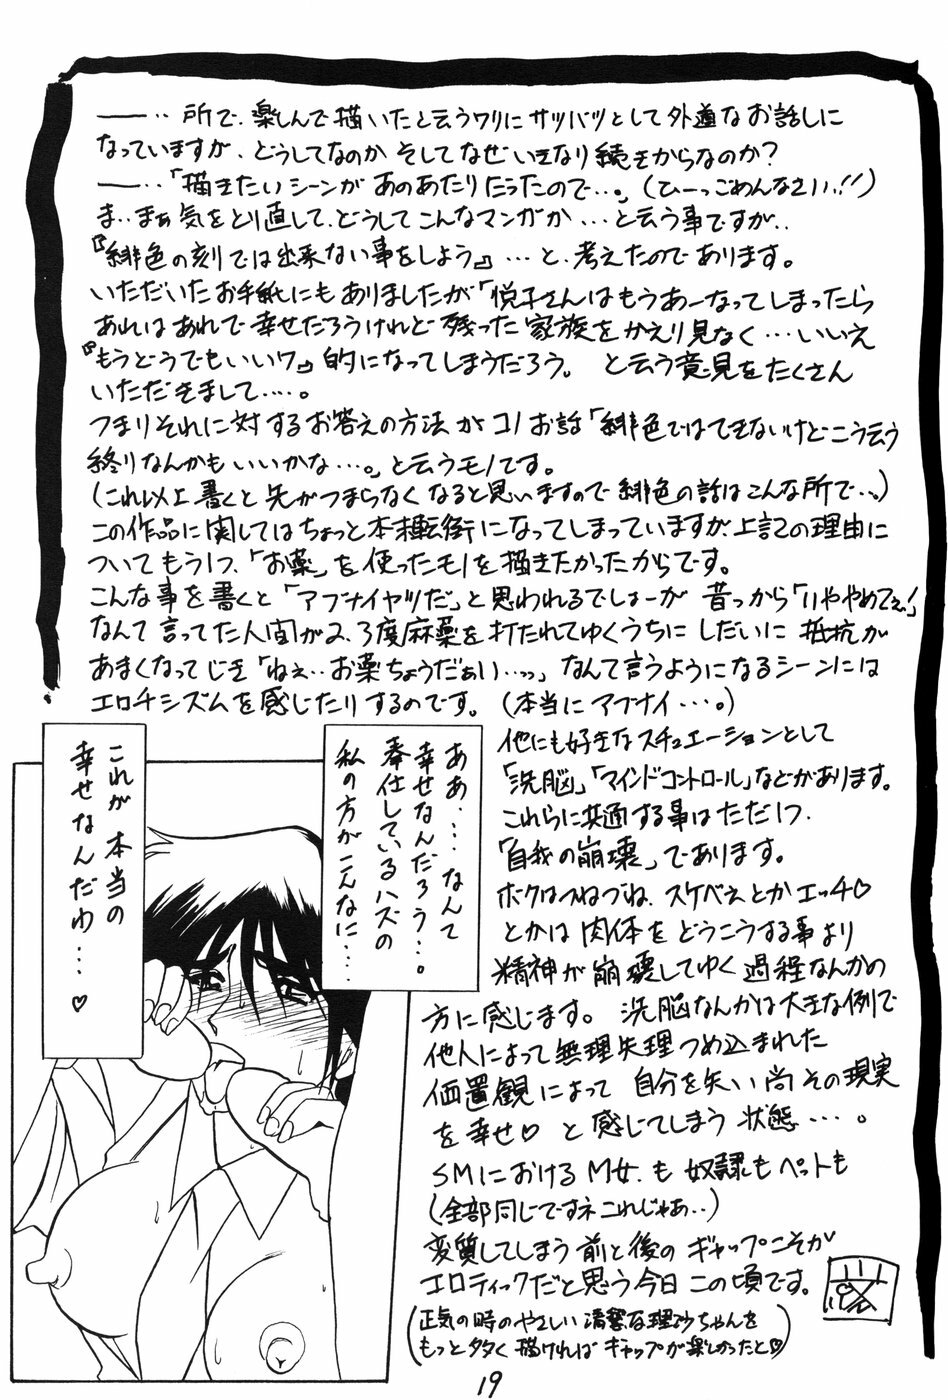 ――‥所で、楽しんで描いたと云うワリにサツバツとして外道なお話しに
なっていますが、どうしてなのか そしてなぜいきなり続きからなのか？
――‥「描きたいシーンがあのあたりだったので…。」（ひーっごめんなさい!!）
ま‥まぁ気をとり直して、どうしてこんなマンガか…と云う事ですが‥
『緋色の刻では出来ない事をしよう』…と、考えたのであります。
いただいたお手紙にもありましたが「悦子さんはもうあーなってしまったら
あれはあれで幸せだろうけれど残った家族をかえり見なく…いいえ
『もうどうでもいいワ』的になってしまうだろう。 と云う意見をたくさん
いただきまして‥‥。
つまりそれに対するお答えの方法がコノお話「緋色ではできないけどこう云う
終りなんかもいいかな…。」と云うモノです。
（これ以上書くと先がつまらなくなると思いますので緋色の話はこんな所で‥。）
この作品に関してはちょっと本末転倒になってしまっていますが、上記の理由に
ついてもう1つ、「お薬」を使ったモノを描きたかったからです。
こんな事を書くと「アブナイヤツだ」と思われるでしょーが 昔っから「いややめてぇ!」
なんて言ってた人間が2、3度麻薬を打たれてゆくうちに しだいに 抵抗が
あまくなってじき「ねぇ‥お薬ちょうだぁい…っ」なんて言うようになるシーンには
エロチシズムを感じたりするのです。（本当にアブナイ…。）
他にも好きなスチュエーションとして
「洗脳」「マインドコントロール」などがあります。
これらに共通する事はただ1つ、
「自我の崩壊」であります。
ボクはつねづね、スケベぇとかエッチ♡
とかは肉体をどうこうする事より
精神が崩壊してゆく過程なんかの
方に感じます。 洗脳なんかは大きな例で
他人によって無理矢理つめ込まれた
価置観によって 自分を失い尚その現実
を幸せ♡と感じてしまう状態‥‥。
SMにおけるM女も奴隷もペットも
（全部同じですネこれじゃあ‥）
変質してしまう前と後のギャップこそが
エロティックだと思う今日この頃です。
（正気の時のやさしい清楚な理砂ちゃんを
もっと多く描ければギャップが楽しかったと♡）
ああ…なんて
幸せなんだろう…。
奉仕しているハズの
私の方がこんなに…
これが本当の
幸せなんだわ…♡
19